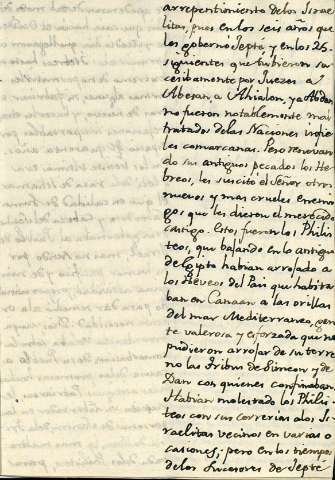 arrepentimiento de los Israe
litas, pues en los seis años que
los governo Jepte, y en los 25
siguientes que tubieron su
cesibamente por Juezes a
Abesan, a Ahialon, y a Abdon
no fueron notablemente mal
tratados de las Naciones
les comarcanas. Pero renovan
do sus antiguos pecados los He
breos, les suscitó el Señor otros
nuevos y mas crueles enemi
gos que les dieron el merecido
castigo. Estos fueron los Philis
teos, que bajando en lo antiguo
de Egipto habian arrojado a
los Heveos del Pais que habita
ban en Canaan a las orillas
del mar Mediterraneo, gen
te valerosa y esforzada que no
pudieron arrojar de su terre
no las Tribus de Simeon y de
Dan con quienes confinaban.
Habian molestado los Philis
teos con sus correrias a los Is
raelitas vecinos en varias o
casiones; pero en los tiempos
de los sucesores de Jepte